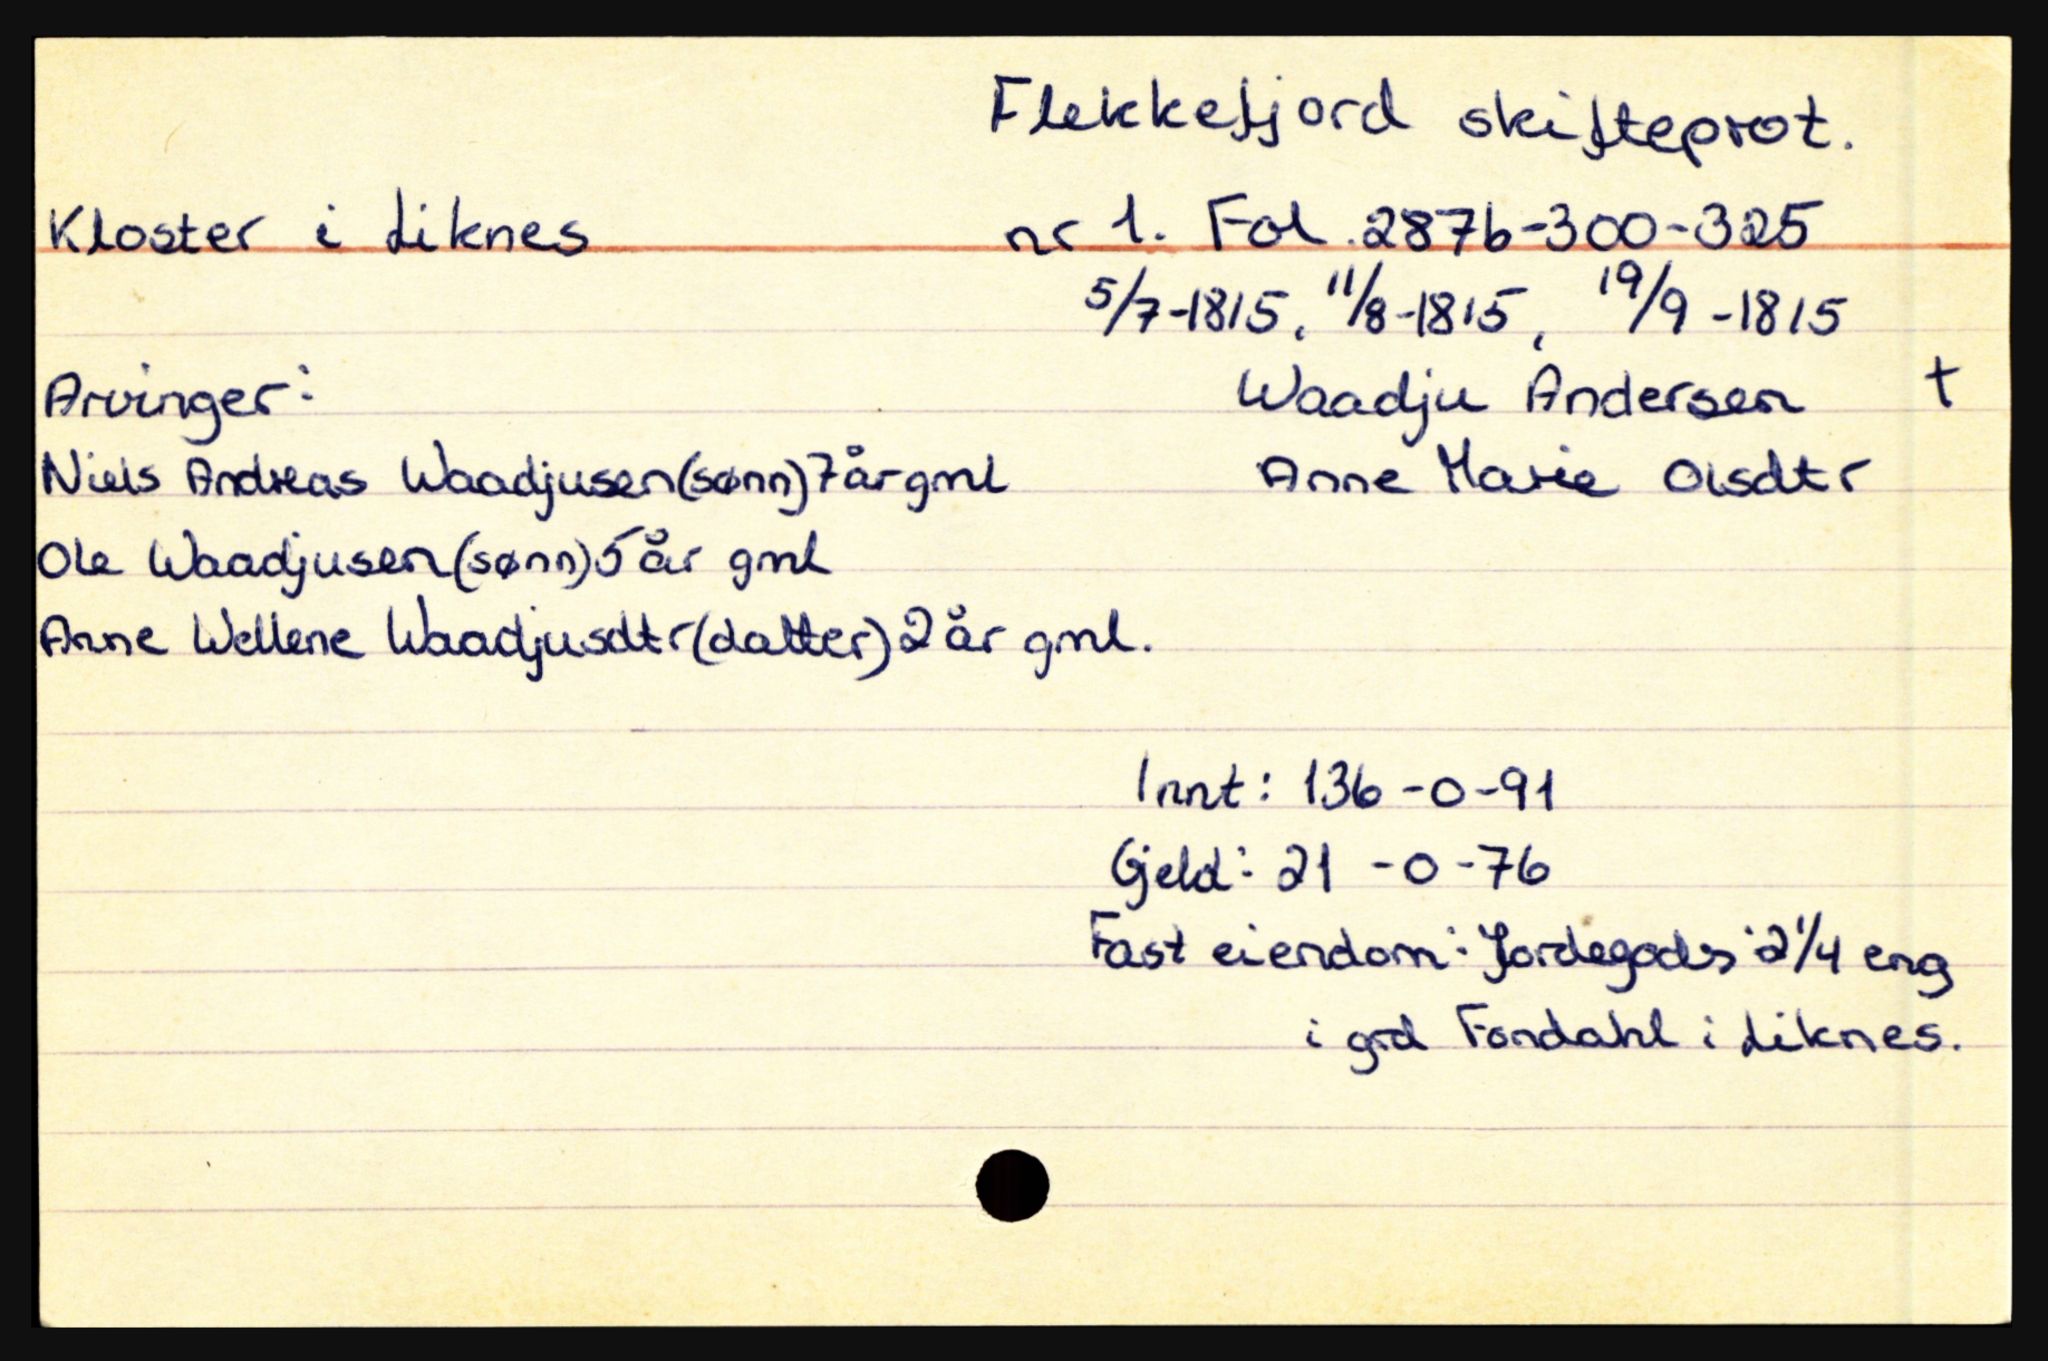 Flekkefjord skifteprot.
Kloster i Liknes
nr 1. Fol. 287b-300-325
5/7-1815, 11/8-1815, 19/9-1815
Arvinger:
Waadju Andersen †
Niels Andreas Waadjusen (sønn) 7 år gml
Anne Marie Olsdtr
Ole Waadjusen (sønn) 5 år gml
Anne Wellene Waadjusdtr (datter) 2 år gml.
Innt: 136-0-91
Gjeld: 21-0-76
Fast eiendom: Jordegods: 2 1/4 eng
i grd Fondahl i Liknes.